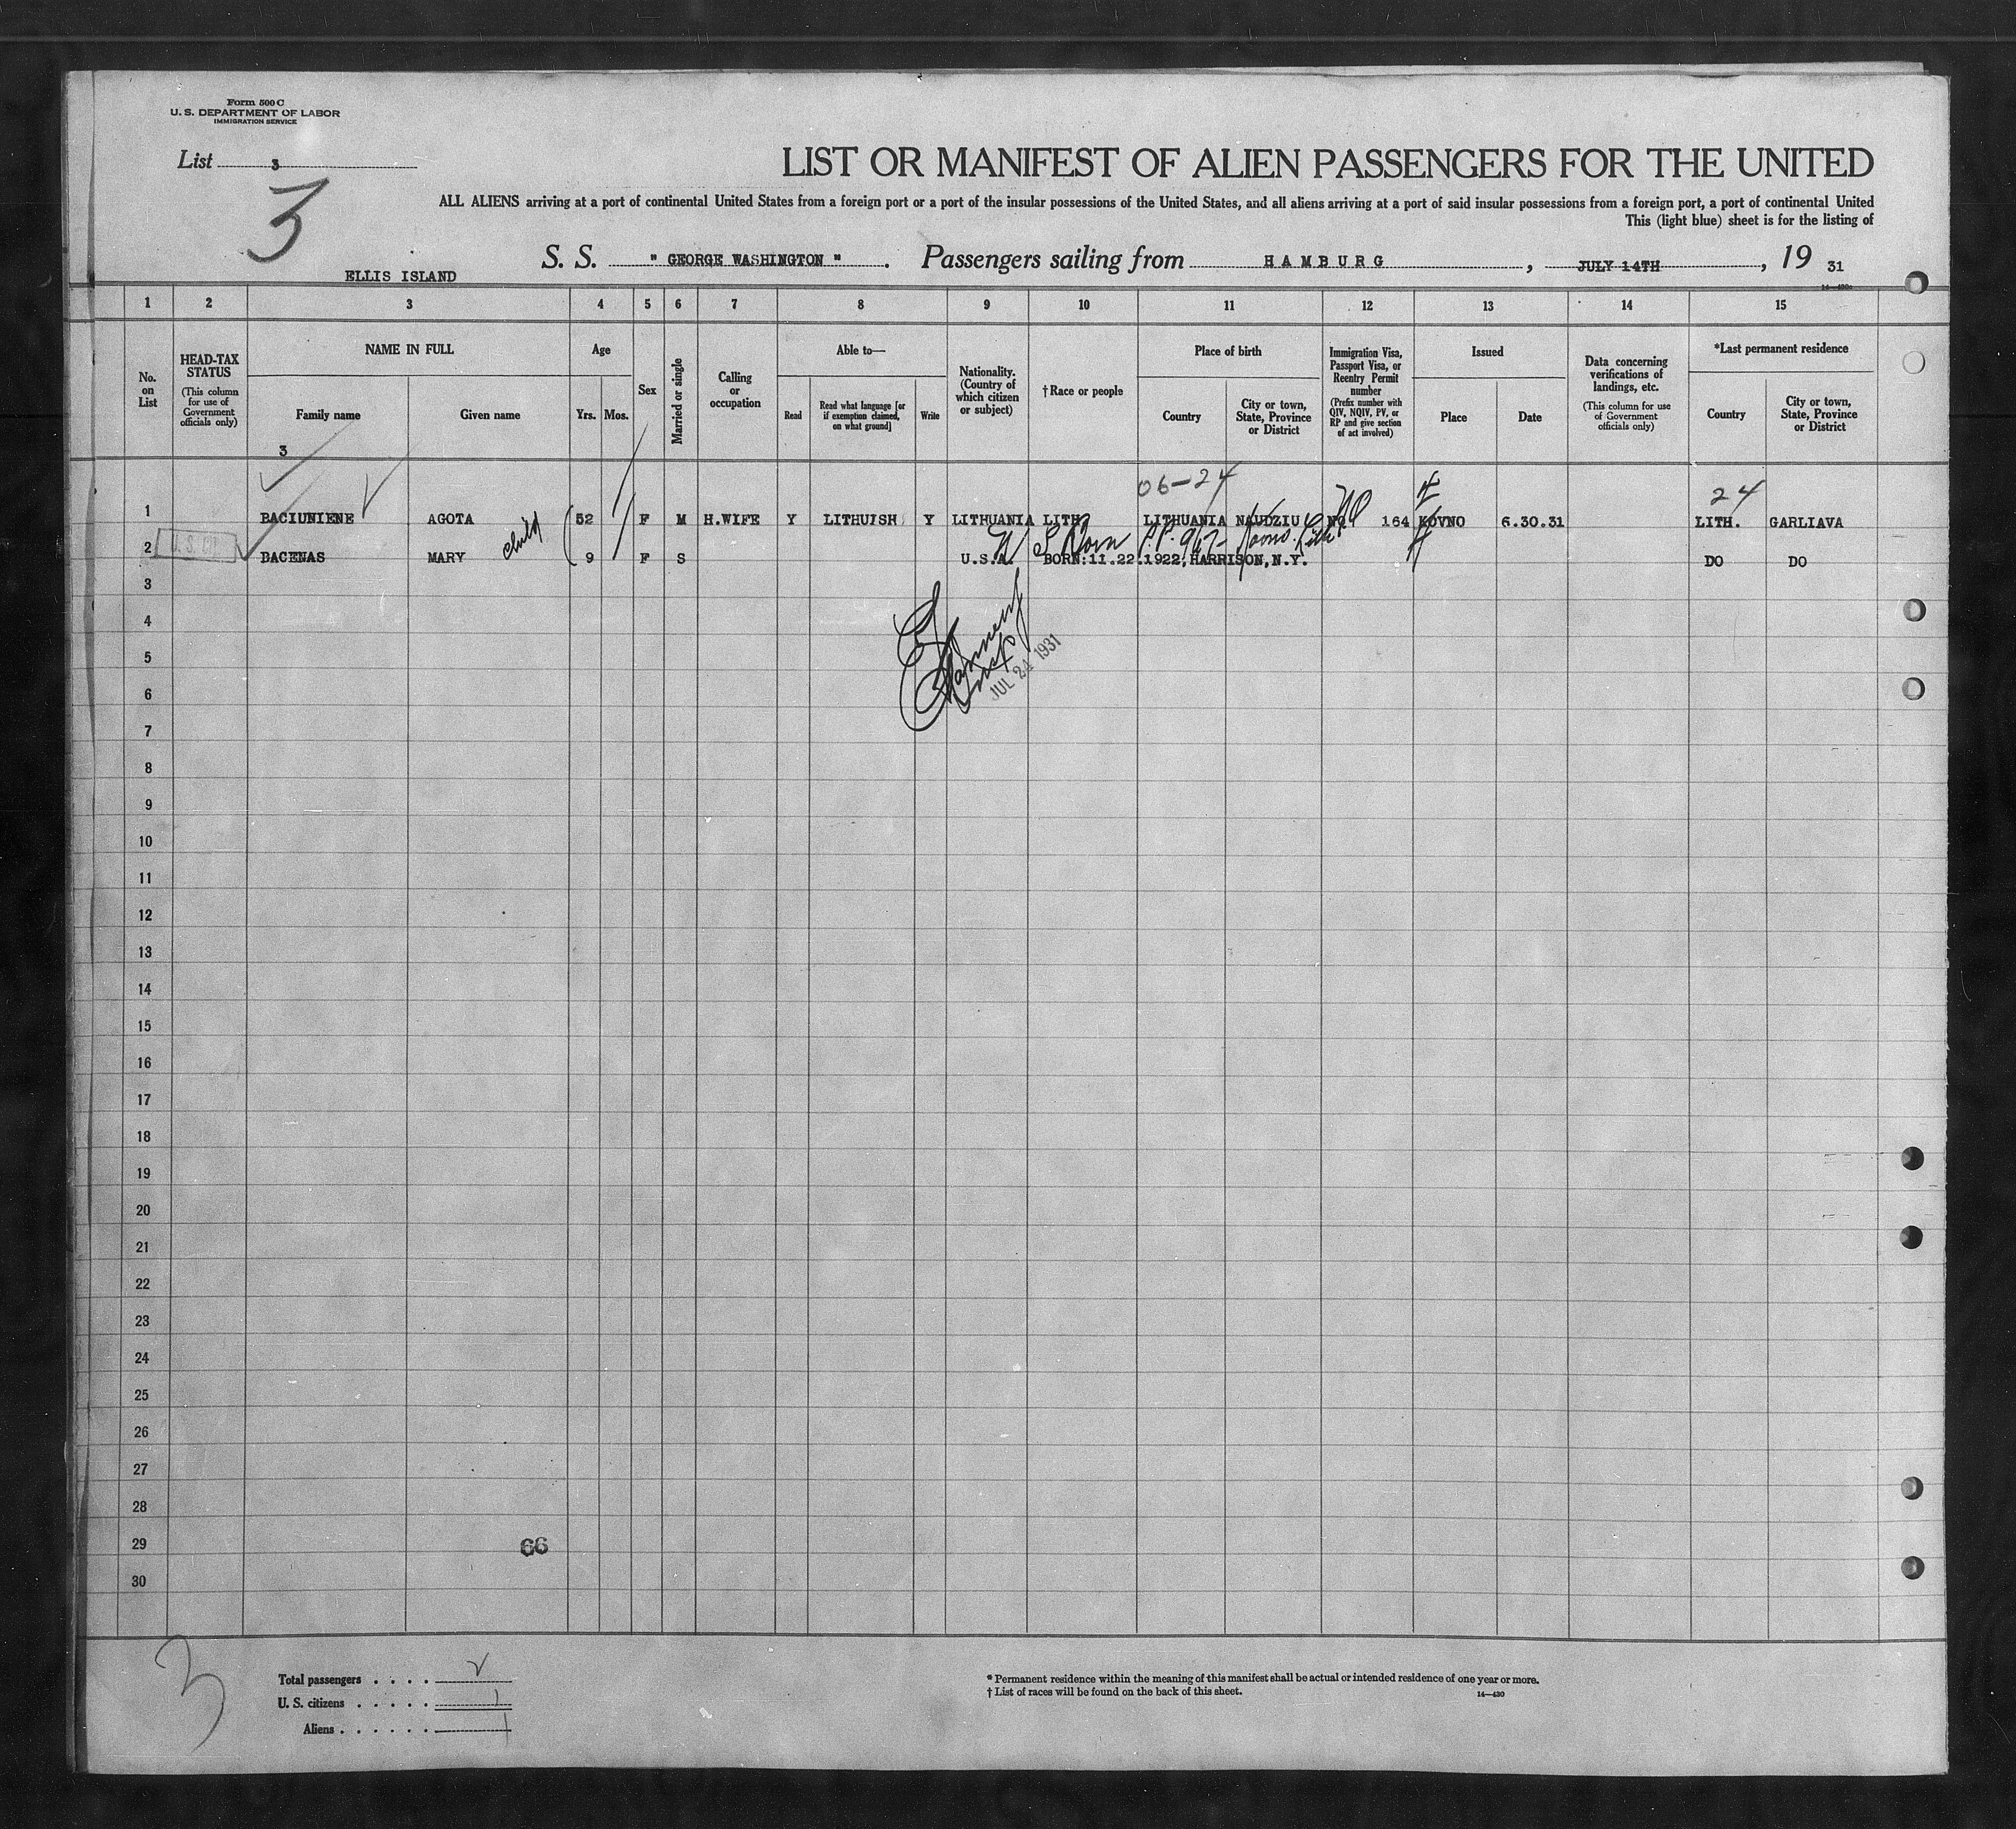 Form 500 C
U. S. DEPARTMENT OF LABOR
IMMIGRATION SERVICE
List 3
3
LIST OR MANIFEST OF ALIEN PASSENGERS FOR THE UNITED
ALL ALIENS arriving at a port of continental United States from a foreign port or a port of the insular possessions of the United States, and all aliens arriving at a port of said insular possessions from a foreign port, a port of continental United
This (light blue) sheet is for the listing of
ELLIS ISLAND
S. S. " GEORGE WASHINGTON " . Passengers sailing from HAMBURG , JULY 14TH , 19 31
1 2 3 4 5 6 7 8 9 10 11 12 13 14 15
No. on List
HEAD-TAX STATUS
(This column for use of Government officials only)
NAME IN FULL
Family name
Given name
3
Age
Yrs. Mos.
Sex
Married or single
Calling or occupation
Able to—
Read
Read what language [or if exemption claimed, on what ground]
Write
Nationality. (Country of which citizen or subject)
† Race or people
Place of birth
Country
City or town, State, Province or District
Immigration Visa, Passport Visa, or Reentry Permit number
(Prefix number with QIV, NQIV, PV, or RP and give section of act involved)
Issued
Place
Date
Data concerning verifications of landings, etc.
(This column for use of Government officials only)
*Last permanent residence
Country
City or town, State, Province or District
06-24
24
1 BACIUNIENE AGOTA 52 F M H.WIFE Y LITHUISH Y LITHUANIA LITH. LITHUANIA 164 KOVNO 6.30.31 LITH. GARLIAVA
child
U S Born P.P. 967-
2 U. S. CIT BACENAS MARY 9 F S U.S.A. BORN:11.22.1922,HARRISON,N.Y. DO DO
3
4
5
JUL 24 1931
6
7
8
9
10
11
12
13
14
15
16
17
18
19
20
21
22
23
24
25
26
27
28
29
66
30
3
Total passengers . . . . 2
U. S. citizens . . . . . 1
Aliens . . . . . . 1
* Permanent residence within the meaning of this manifest shall be actual or intended residence of one year or more.
† List of races will be found on the back of this sheet.
14—430